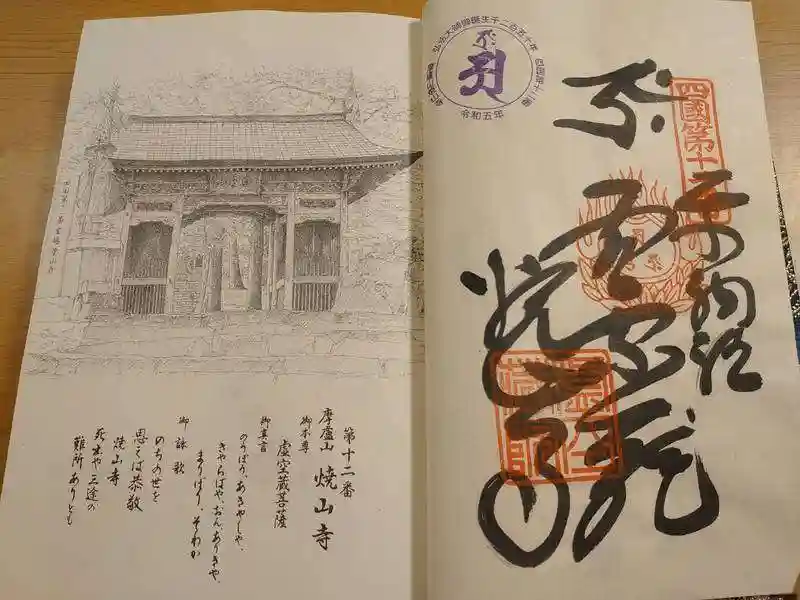 奉納経
四國第十
虚空蔵
焼山寺
弘法大師御誕生千二百五十年
四国第十二番
令和五年
第十二番
摩廬山 焼山寺
御本尊
虚空蔵菩薩
御真言
のうぼう、あきゃしゃ、
きゃらばや、おん、ありきゃ、
まりぼり、そわか
御詠歌
のちの世を
思えば恭敬
焼山寺
死出や三途の
難所ありとも